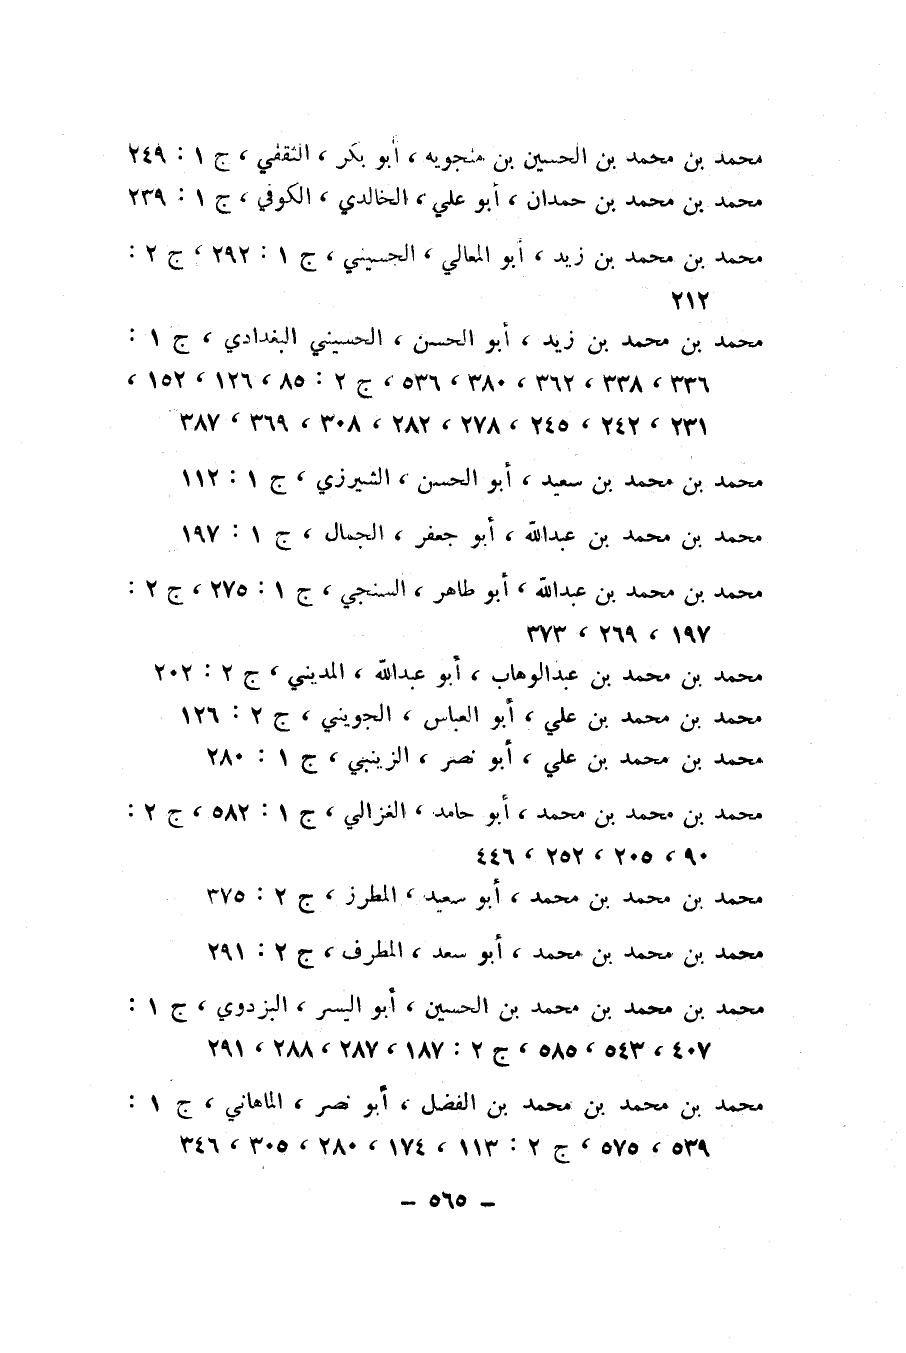 محمد بن محمد بن الحسين بن منجويه ، أبو بكر ، الثقفي ، ج ١ : ٢٤٩
محمد بن محمد بن حمدان ، أبو علي ، الخالدي ، الكوفي ، ج ١ : ٢٣٩
محمد بن محمد بن زيد ، أبو المعالي ، الحسيني ، ج ١ : ٢٩٢ ، ج ٢ :
٢١٢
محمد بن محمد بن زيد ، أبو الحسن ، الحسيني البغدادي ، ج ١ :
٣٣٦ ، ٣٣٨ ، ٣٦٢ ، ٣٨٠ ، ٥٣٦ ، ج ٢ : ٨٥ ، ١٢٦ ، ١٥٢ ،
٢٣١ ، ٢٤٢ ، ٢٤٥ ، ٢٧٨ ، ٢٨٢ ، ٣٠٨ ، ٣٦٩ ، ٣٨٧
محمد بن محمد بن سعيد ، أبو الحسن ، الشيرزي ، ج ١ : ١١٢
محمد بن محمد بن عبدالله ، أبو جعفر ، الجمال ، ج ١ : ١٩٧
محمد بن محمد بن عبدالله ، أبو طاهر ، السنجي ، ج ١ : ٢٧٥ ، ج ٢ :
١٩٧ ، ٢٦٩ ، ٣٧٣
محمد بن محمد بن عبدالوهاب ، أبو عبدالله ، المديني ، ج ٢ : ٢٠٢
محمد بن محمد بن علي ، أبو العباس ، الجويني ، ج ٢ : ١٢٦
محمد بن محمد بن علي ، أبو نصر ، الزينبي ، ج ١ : ٢٨٠
محمد بن محمد بن محمد ، أبو حامد ، الغزالي ، ج ١ : ٥٨٢ ، ج ٢ :
٩٠ ، ٢٠٥ ، ٢٥٢ ، ٤٤٦
محمد بن محمد بن محمد ، أبو سعيد ، المطرز ، ج ٢ : ٣٧٥
محمد بن محمد بن محمد ، أبو سعد ، المطرف ، ج ٢ : ٢٩١
محمد بن محمد بن محمد بن الحسين ، أبو اليسر ، البزدوي ، ج ١ :
٤٠٧ ، ٥٤٣ ، ٥٨٥ ، ج ٢ : ١٨٧ ، ٢٨٧ ، ٢٨٨ ، ٢٩١
محمد بن محمد بن محمد بن الفضل ، أبو نصر ، الماهاني ، ج ١ :
٥٣٩ ، ٥٧٥ ، ج ٢ : ١١٣ ، ١٧٤ ، ٢٨٠ ، ٣٠٥ ، ٣٤٦
– ٥٦٥ –